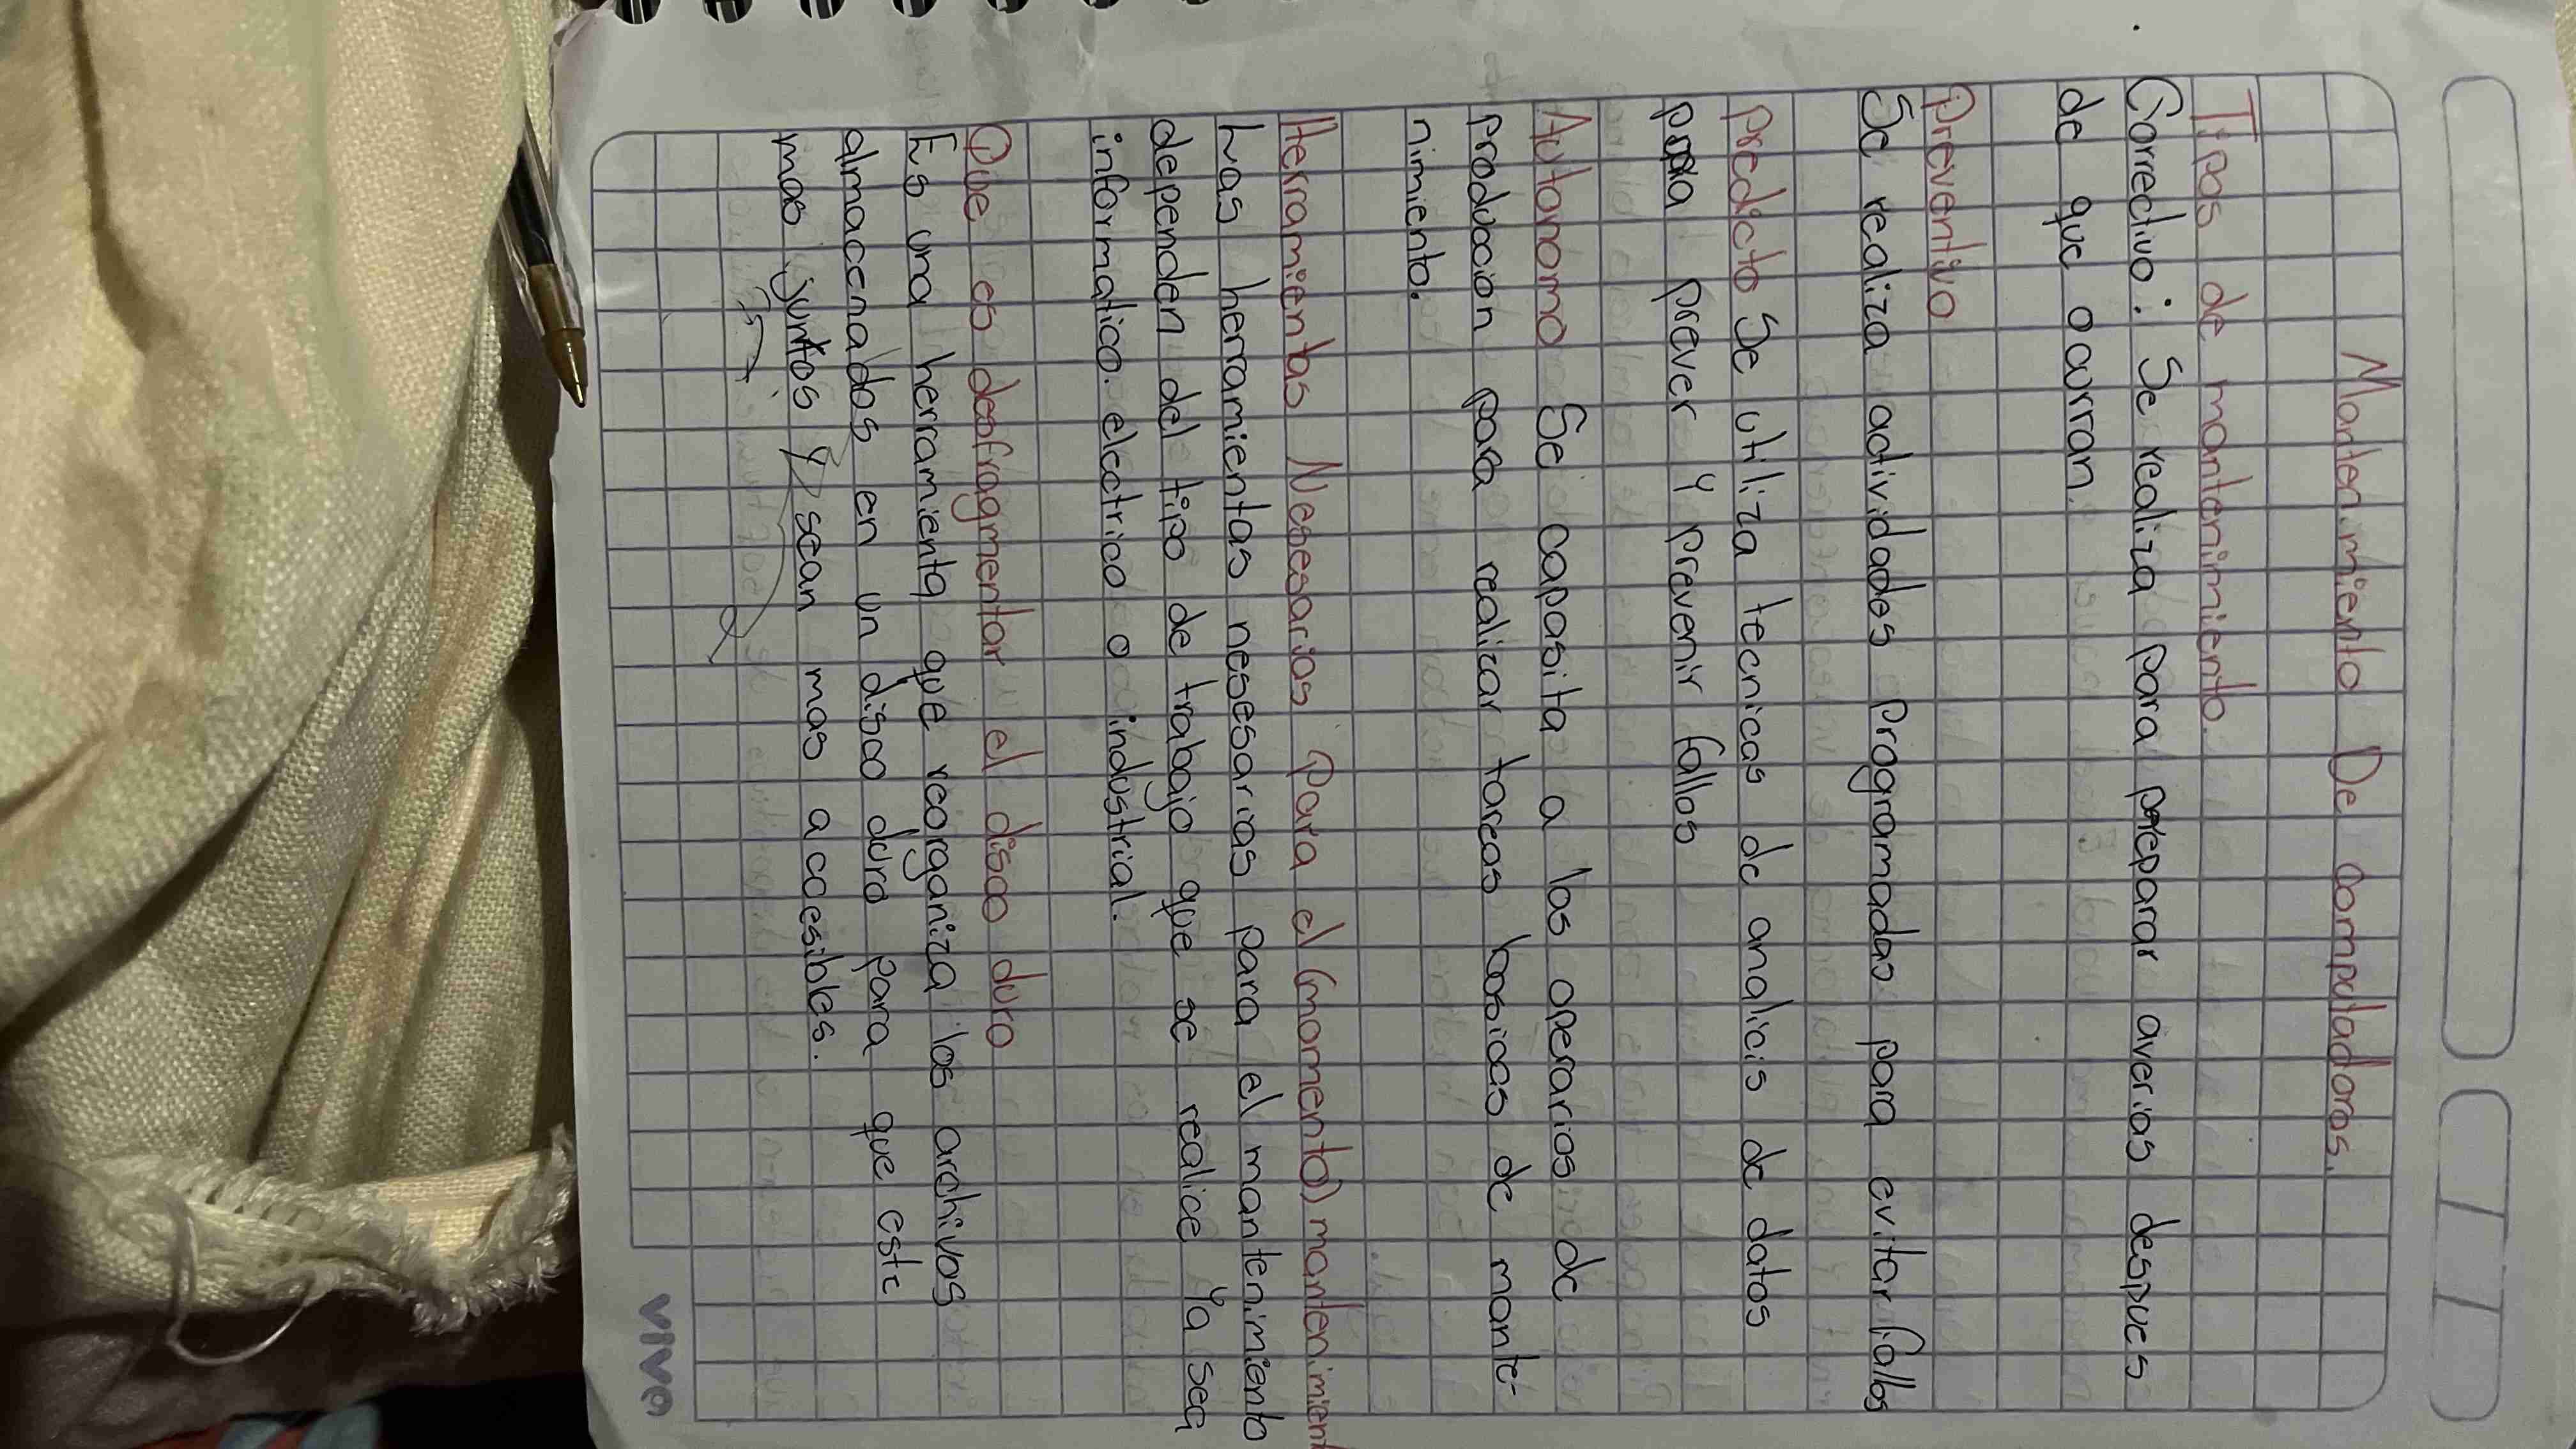 Mantenimiento De computadoras.
Tipos de mantenimiento.
Correctivo: Se realiza para preparar averias despues
de que ocurran.
Preventivo
Se realiza actividades Programadas para evitar fallos
Predicto Se utiliza tecnicas de analicis de datos
para prever y prevenir fallos
Autonomo Se capasita a los operarios de
produccion para realizar tareas basicas de mante-
nimiento.
Herramientas Nesesarias Para el (momento) mantenimient
Las herramientas nesesarias para el mantenimiento
dependen del tipo de trabajo que se realice Ya sea
informatico. electrico o industrial.
Que es desfragmentar el disco duro
Es una herramienta que reorganiza los archivos
almacenados en un disco duro para que este
mas juntos y sean mas accesibles.
vivo